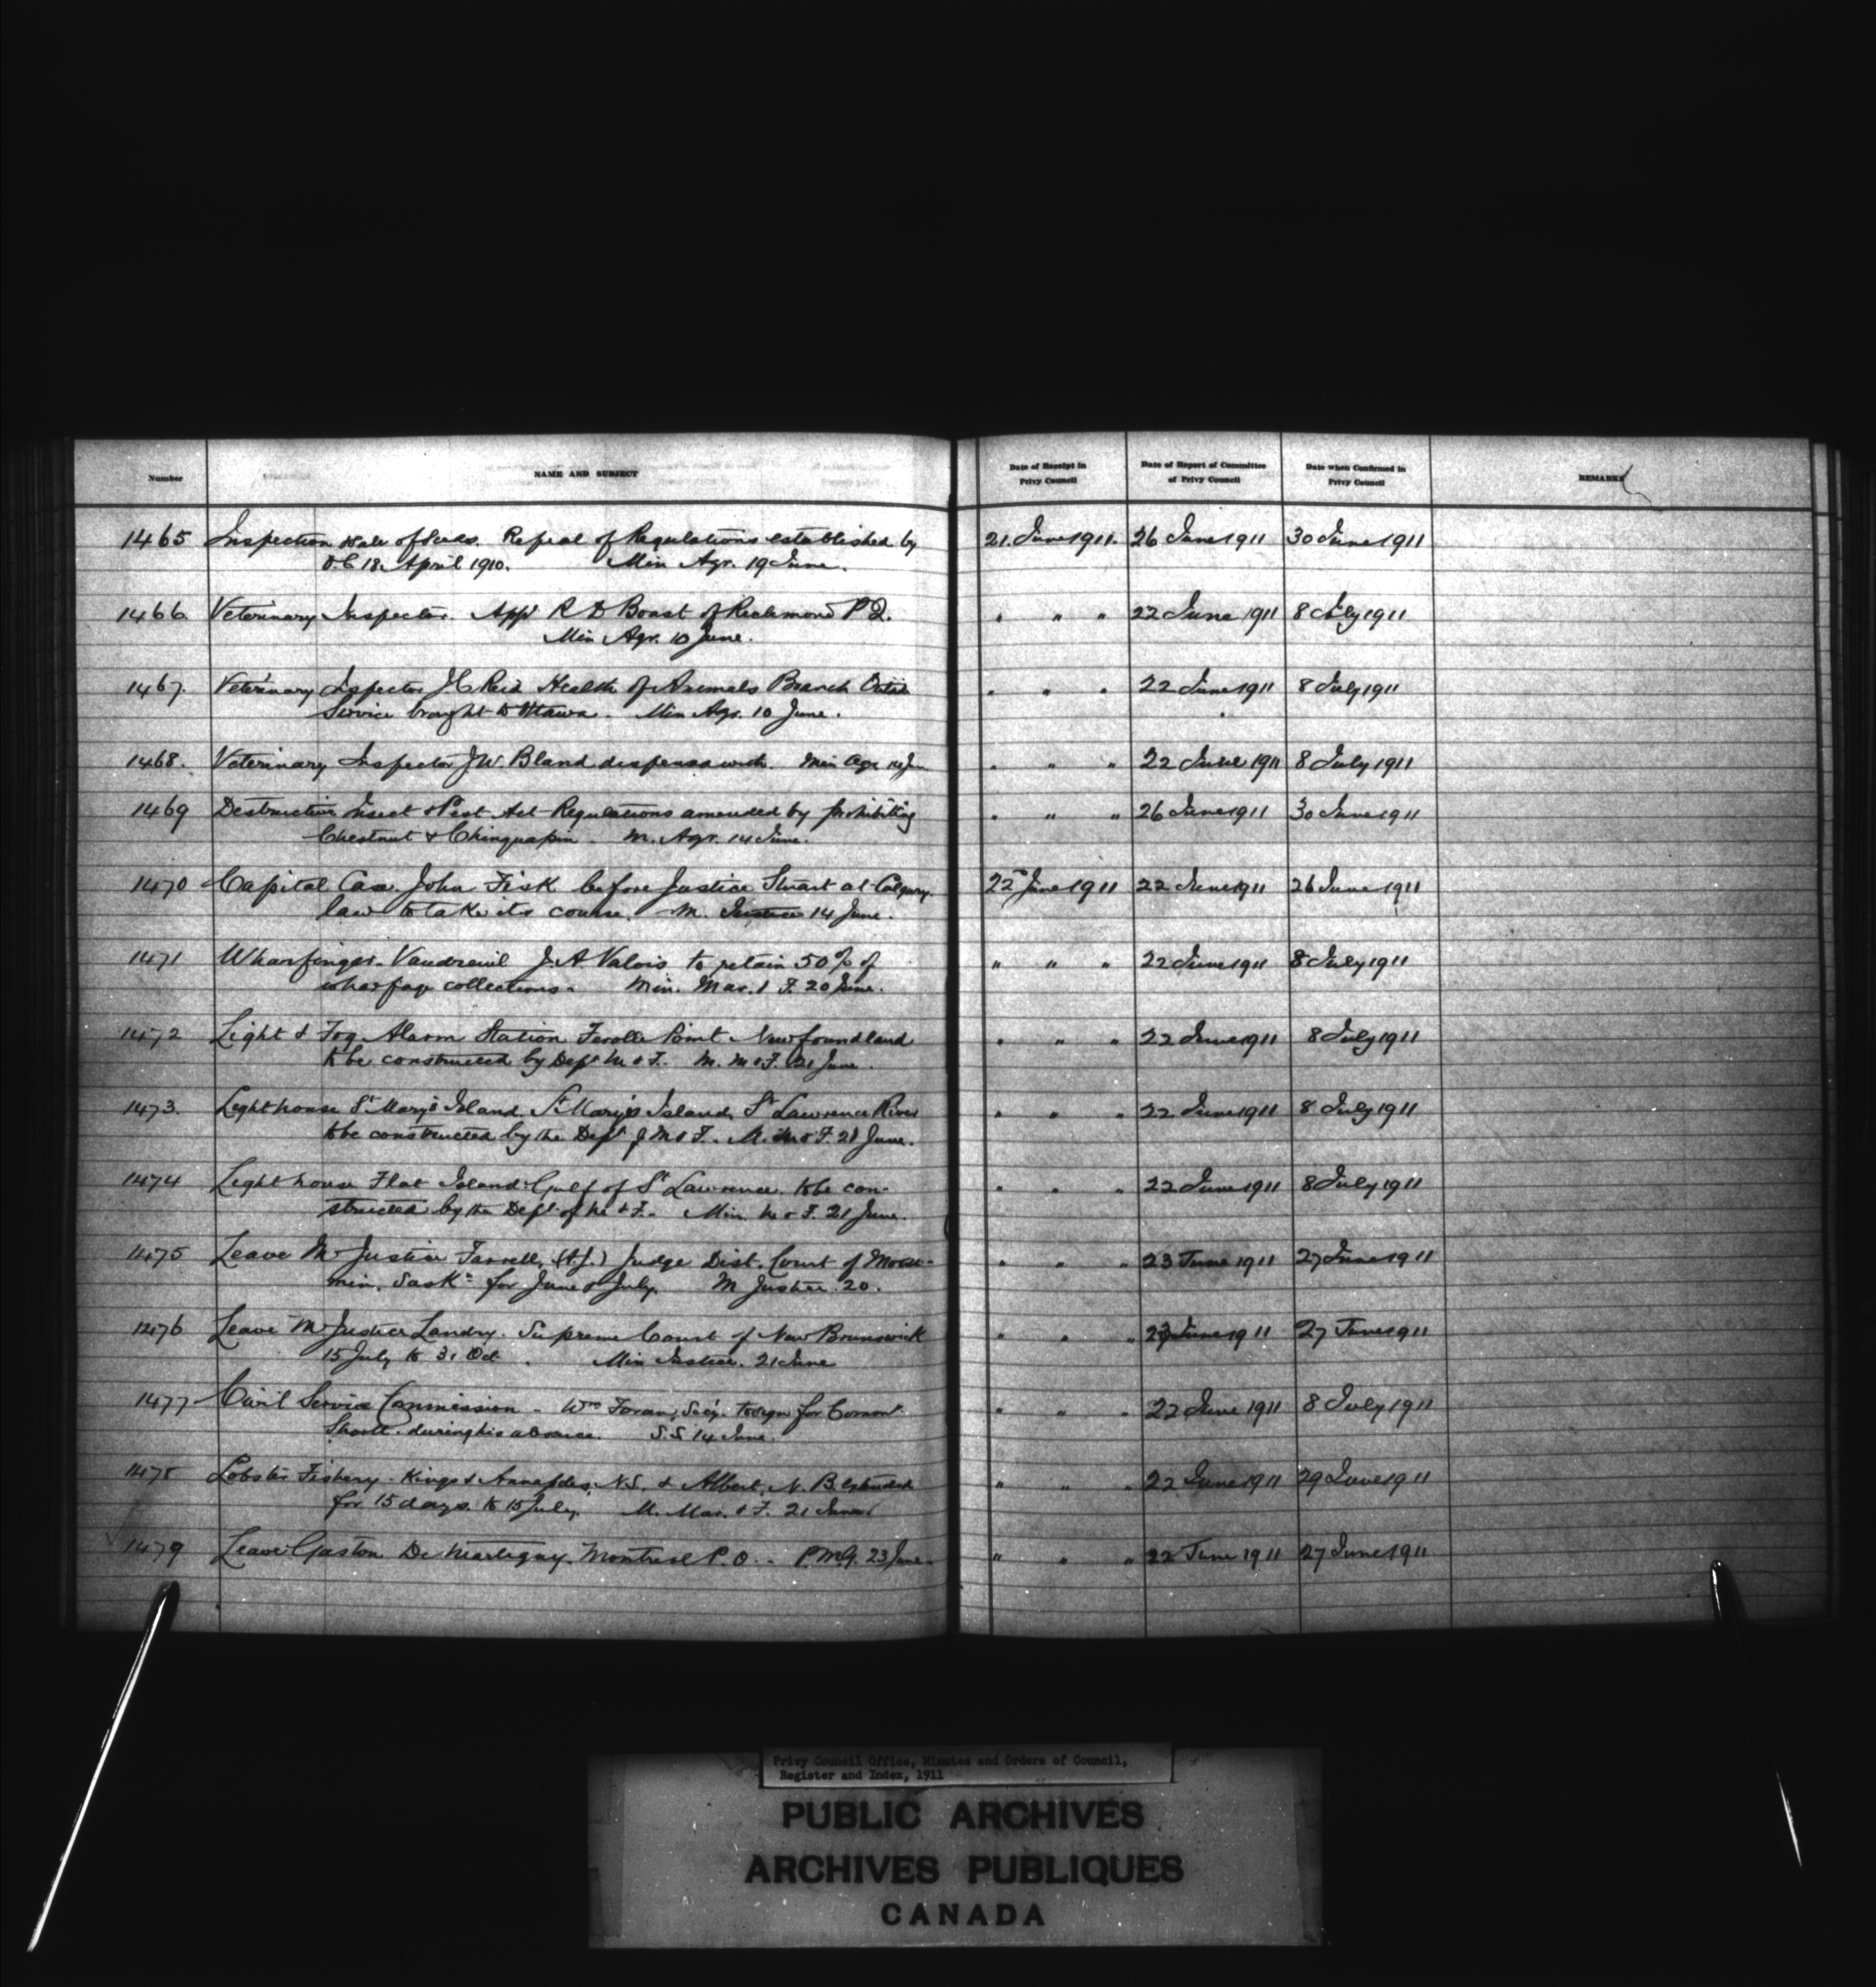 Number NAME AND SUBJECT Date of Receipt in Privy Council Date of Report of Committee of Privy Council Date when Confirmed in Privy Council REMARKS
1465 Inspection & Sale of Seeds. Repeal of Regulations established by 21. June 1911. 26 June 1911 30 June 1911
O.C 18 April 1910. Min Agr. 19 June.
1466. Veterinary Inspector. App' R D Boast of Richmond P Q. " " " 22 June 1911 8 July 1911
Min Agr. 10 June.
1467. Veterinary Inspector J C Reid Health of Animals Branch " " " 22 June 1911 8 July 1911
Service brought to Ottawa. Min Agr. 10 June.
1468. Veterinary Inspector J W. Bland dispensed with. Min Agr 14 Jn " " " 22 June 1911 8 July 1911
1469 Destructive Insect & Pest Act Regulations amended by prohibiting " " " 26 June 1911 30 June 1911
Chestnut & Chinquapin. M. Agr. 14 June.
1470 Capital Case. John Fisk before Justice Stuart at Calgary. 22 June 1911 22 June 1911 26 June 1911
law to take its course. M. Justice 14 June.
1471 Wharfinger. Vaudreuil J. A Valois to retain 50% of " " " 22 June 1911 8 July 1911
wharfage collections. Min. Mar. & F. 20 June.
1472 Light & Fog Alarm Station Ferolle Point Newfoundland " " " 22 June 1911 8 July 1911
to be constructed by Dept M & F. M. M & F. 21 June.
1473. Lighthouse St Mary's Island, St Mary's Island, St Lawrence River " " " 22 June 1911 8 July 1911
to be constructed by the Dept of M & F. M. M & F. 21 June.
1474 Lighthouse Flat Island Gulf of St Lawrence. to be con- " " " 22 June 1911 8 July 1911
structed by the Dept of M & F. Min. M & F. 21 June.
1475 Leave Mr Justice Farrell, (A.J.) Judge Dist. Court of Moosu- " " " 23 June 1911 27 June 1911
min. Sask. for June & July. M Justice. 20.
1476 Leave Mr Justice Landry. Supreme Court of New Brunswick " " " 23 June 1911 27 June 1911
15 July to 31 Oct. Min Justice. 21 June
1477 Civil Service Commission - Wm Foran, Secy. to sign for Commr. " " " 22 June 1911 8 July 1911
Shortt during his absence. S.S. 14 June.
1478 Lobster Fishery - Kings & Annapolis, N.S. & Albert, N. B. extended " " " 22 June 1911 29 June 1911
for 15 days. to 15 July. M. Mar. & F. 21 June
1479 Leave Gaston De Martigny. Montreal P. O. - P.M.G. 23 June. " " " 22 June 1911 27 June 1911
Privy Council Office, Minutes and Orders of Council,
Register and Index, 1911
PUBLIC ARCHIVES
ARCHIVES PUBLIQUES
CANADA